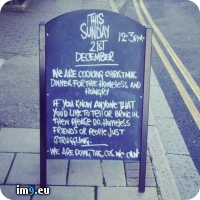 THIS
SUNDAY 12-3PM
21ST
DECEMBER
WE ARE COOKING CHRISTMAS
DINNER FOR THE HOMELESS AND
HUNGRY
IF YOU KNOW ANYONE THAT
YOU'D LIKE TO TELL OR BRING IN
THEN PLEASE DO. HOMELESS
FRIENDS OR PEOPLE JUST
STRUGGLING.
- WE ARE DOING THIS, COS WE CAN!
im9.eu